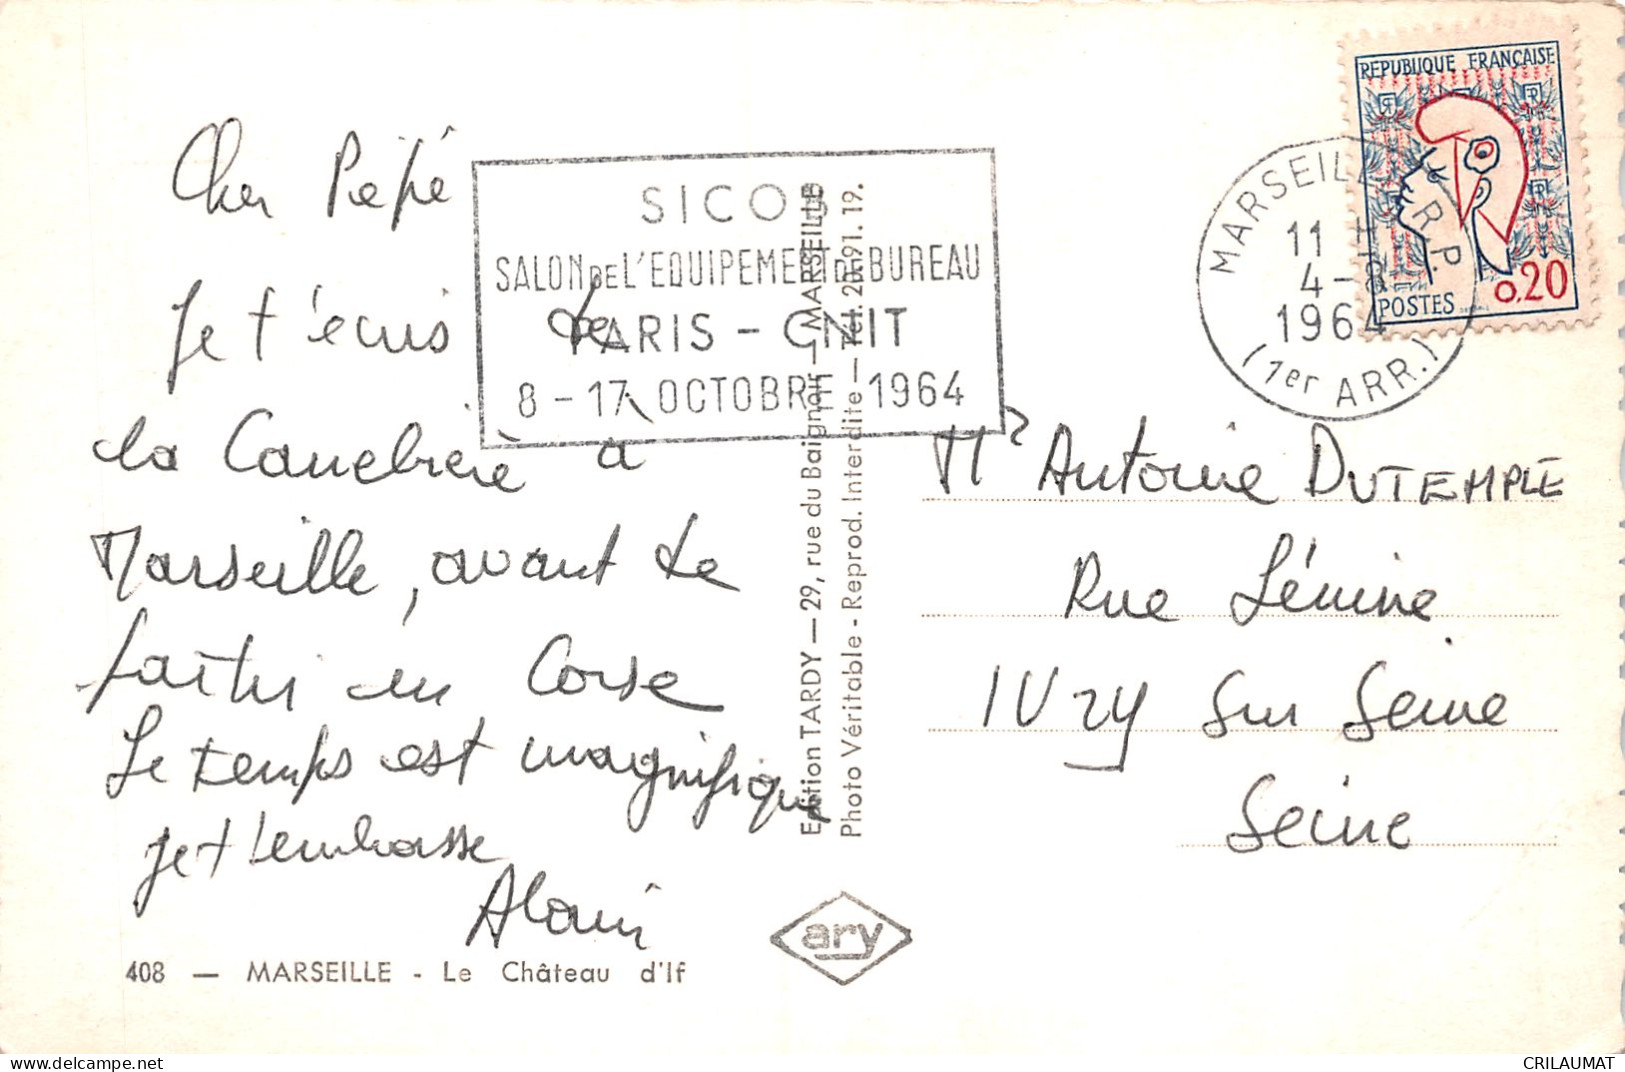 REPUBLIQUE FRANÇAISE
0,20
POSTES
MARSEILLE R.P.
11 H
4-8
1964
(1er ARR.)
SICOB
SALON DE L'EQUIPEMENT DE BUREAU
PARIS - CNIT
8 - 17 OCTOBRE 1964
Cher Pépé
Je t'écris de
la Canebière à
Marseille, avant de
partir en Corse
Le temps est magnifique
je t'embrasse
Alain
Edition TARDY — 29, rue du Baignoir — MARSEILLE
Photo Véritable - Reprod. Interdite — Tél. 20.91.19.
Mr Antoine DUTEMPLE
Rue Lénine
IVRY sur Seine
Seine
ary
408 — MARSEILLE - Le Château d'If
delcampe.net
CRILAUMAT